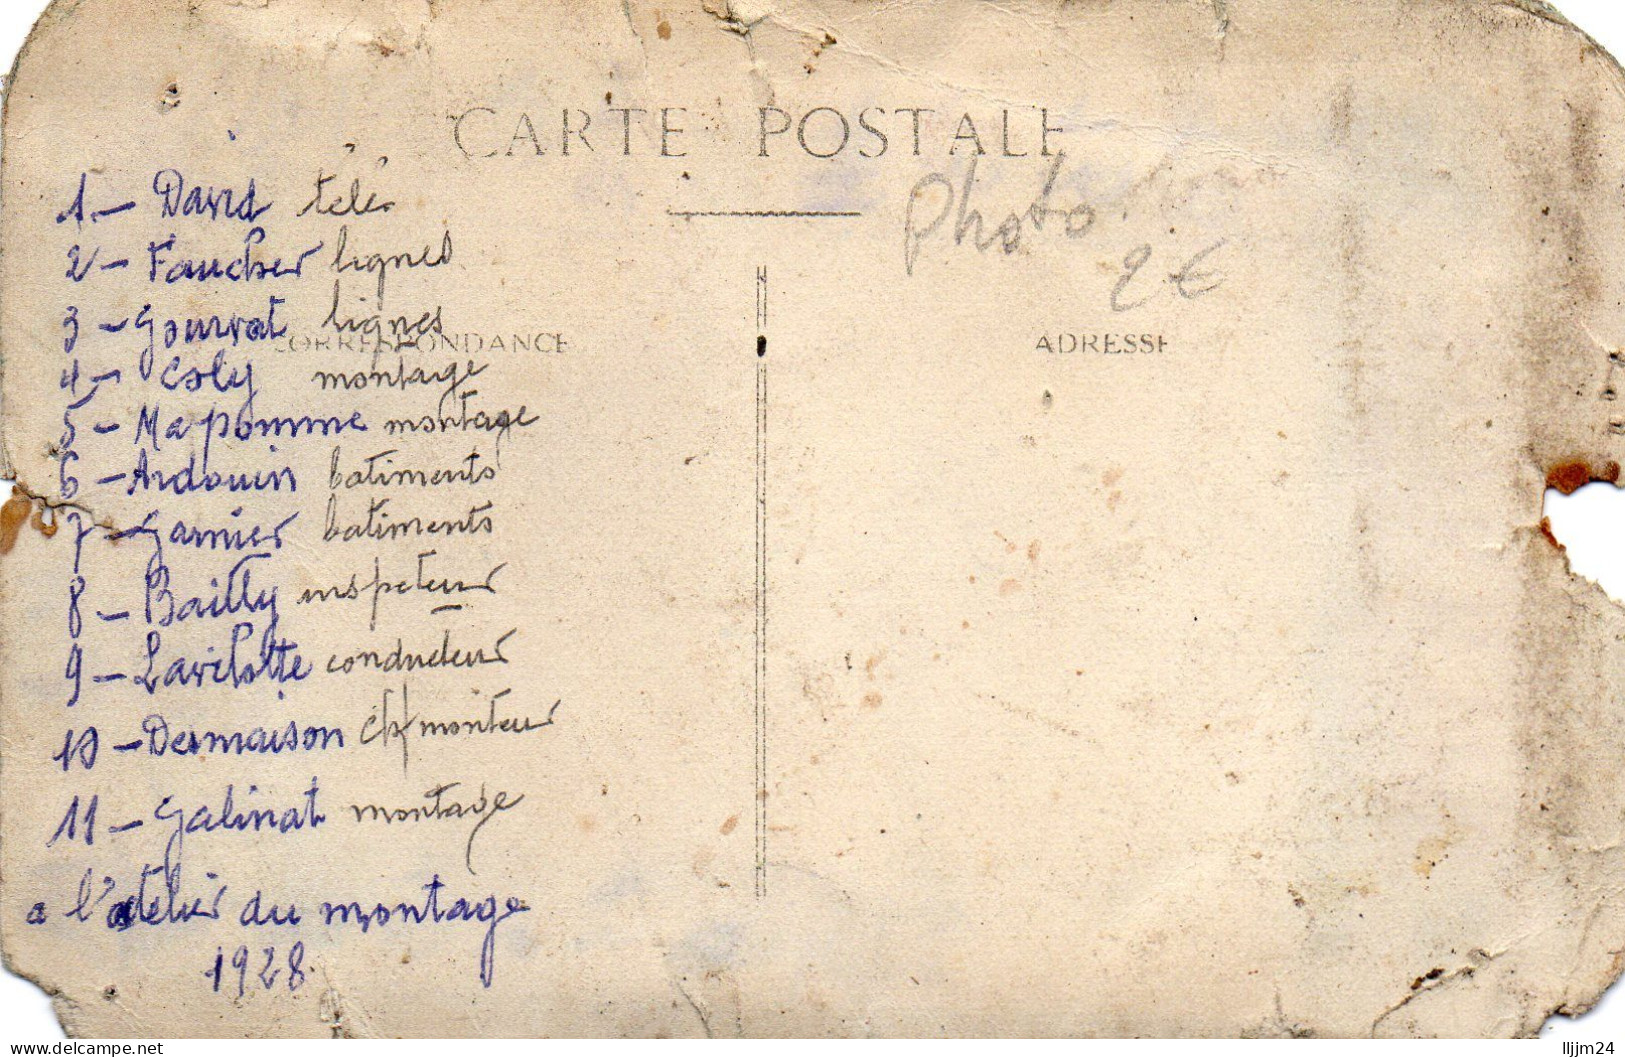 CARTE POSTALE
Photo
2 €
CORRESPONDANCE
ADRESSE
1 - David télé
2 - Faucher lignes
3 - Gourvat lignes
4 - Coly montage
5 - Mapomme montage
6 - Ardouin batiments
7 - Garnier batiments
8 - Bailly inspeteur
9 - Lavilotte conducteur
10 - Desmaison ch/monteur
11 - Galinat montage
a l'atelier du montage
1928
delcampe.net
lljjm24